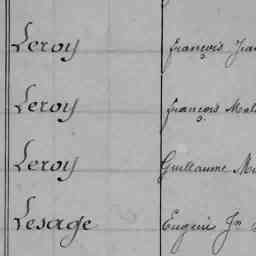 Leroy François
Leroy François
Leroy Guillaume
Lesage Eugène Jn